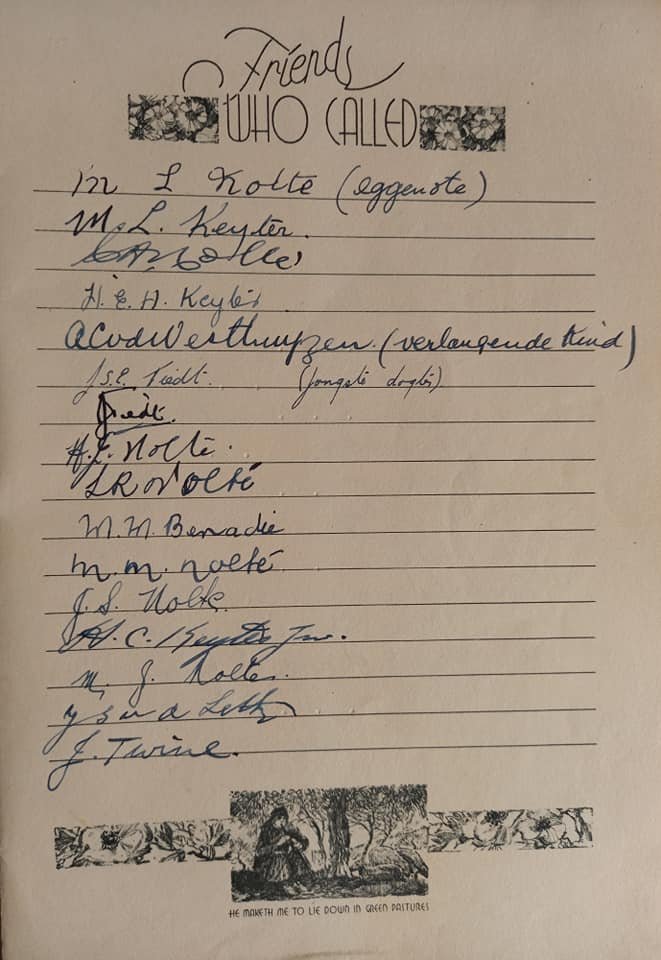 Friends
WHO CALLED
M L Nolte (eggenote)
M. L. Keyter.
H. E. A. Keyter
ACvdWesthuyzen. (verlangende kind)
J.S.E. Tiedt. (jongste dogter)
Tiedt.
H. E. Nolte.
L R Nolté
M. M. Benadie
M. M. Nolté
J. S. Nolte.
H. C. Keyter Jnr.
M. J. Nolte.
J. Twine.
HE MAKETH ME TO LIE DOWN IN GREEN PASTURES